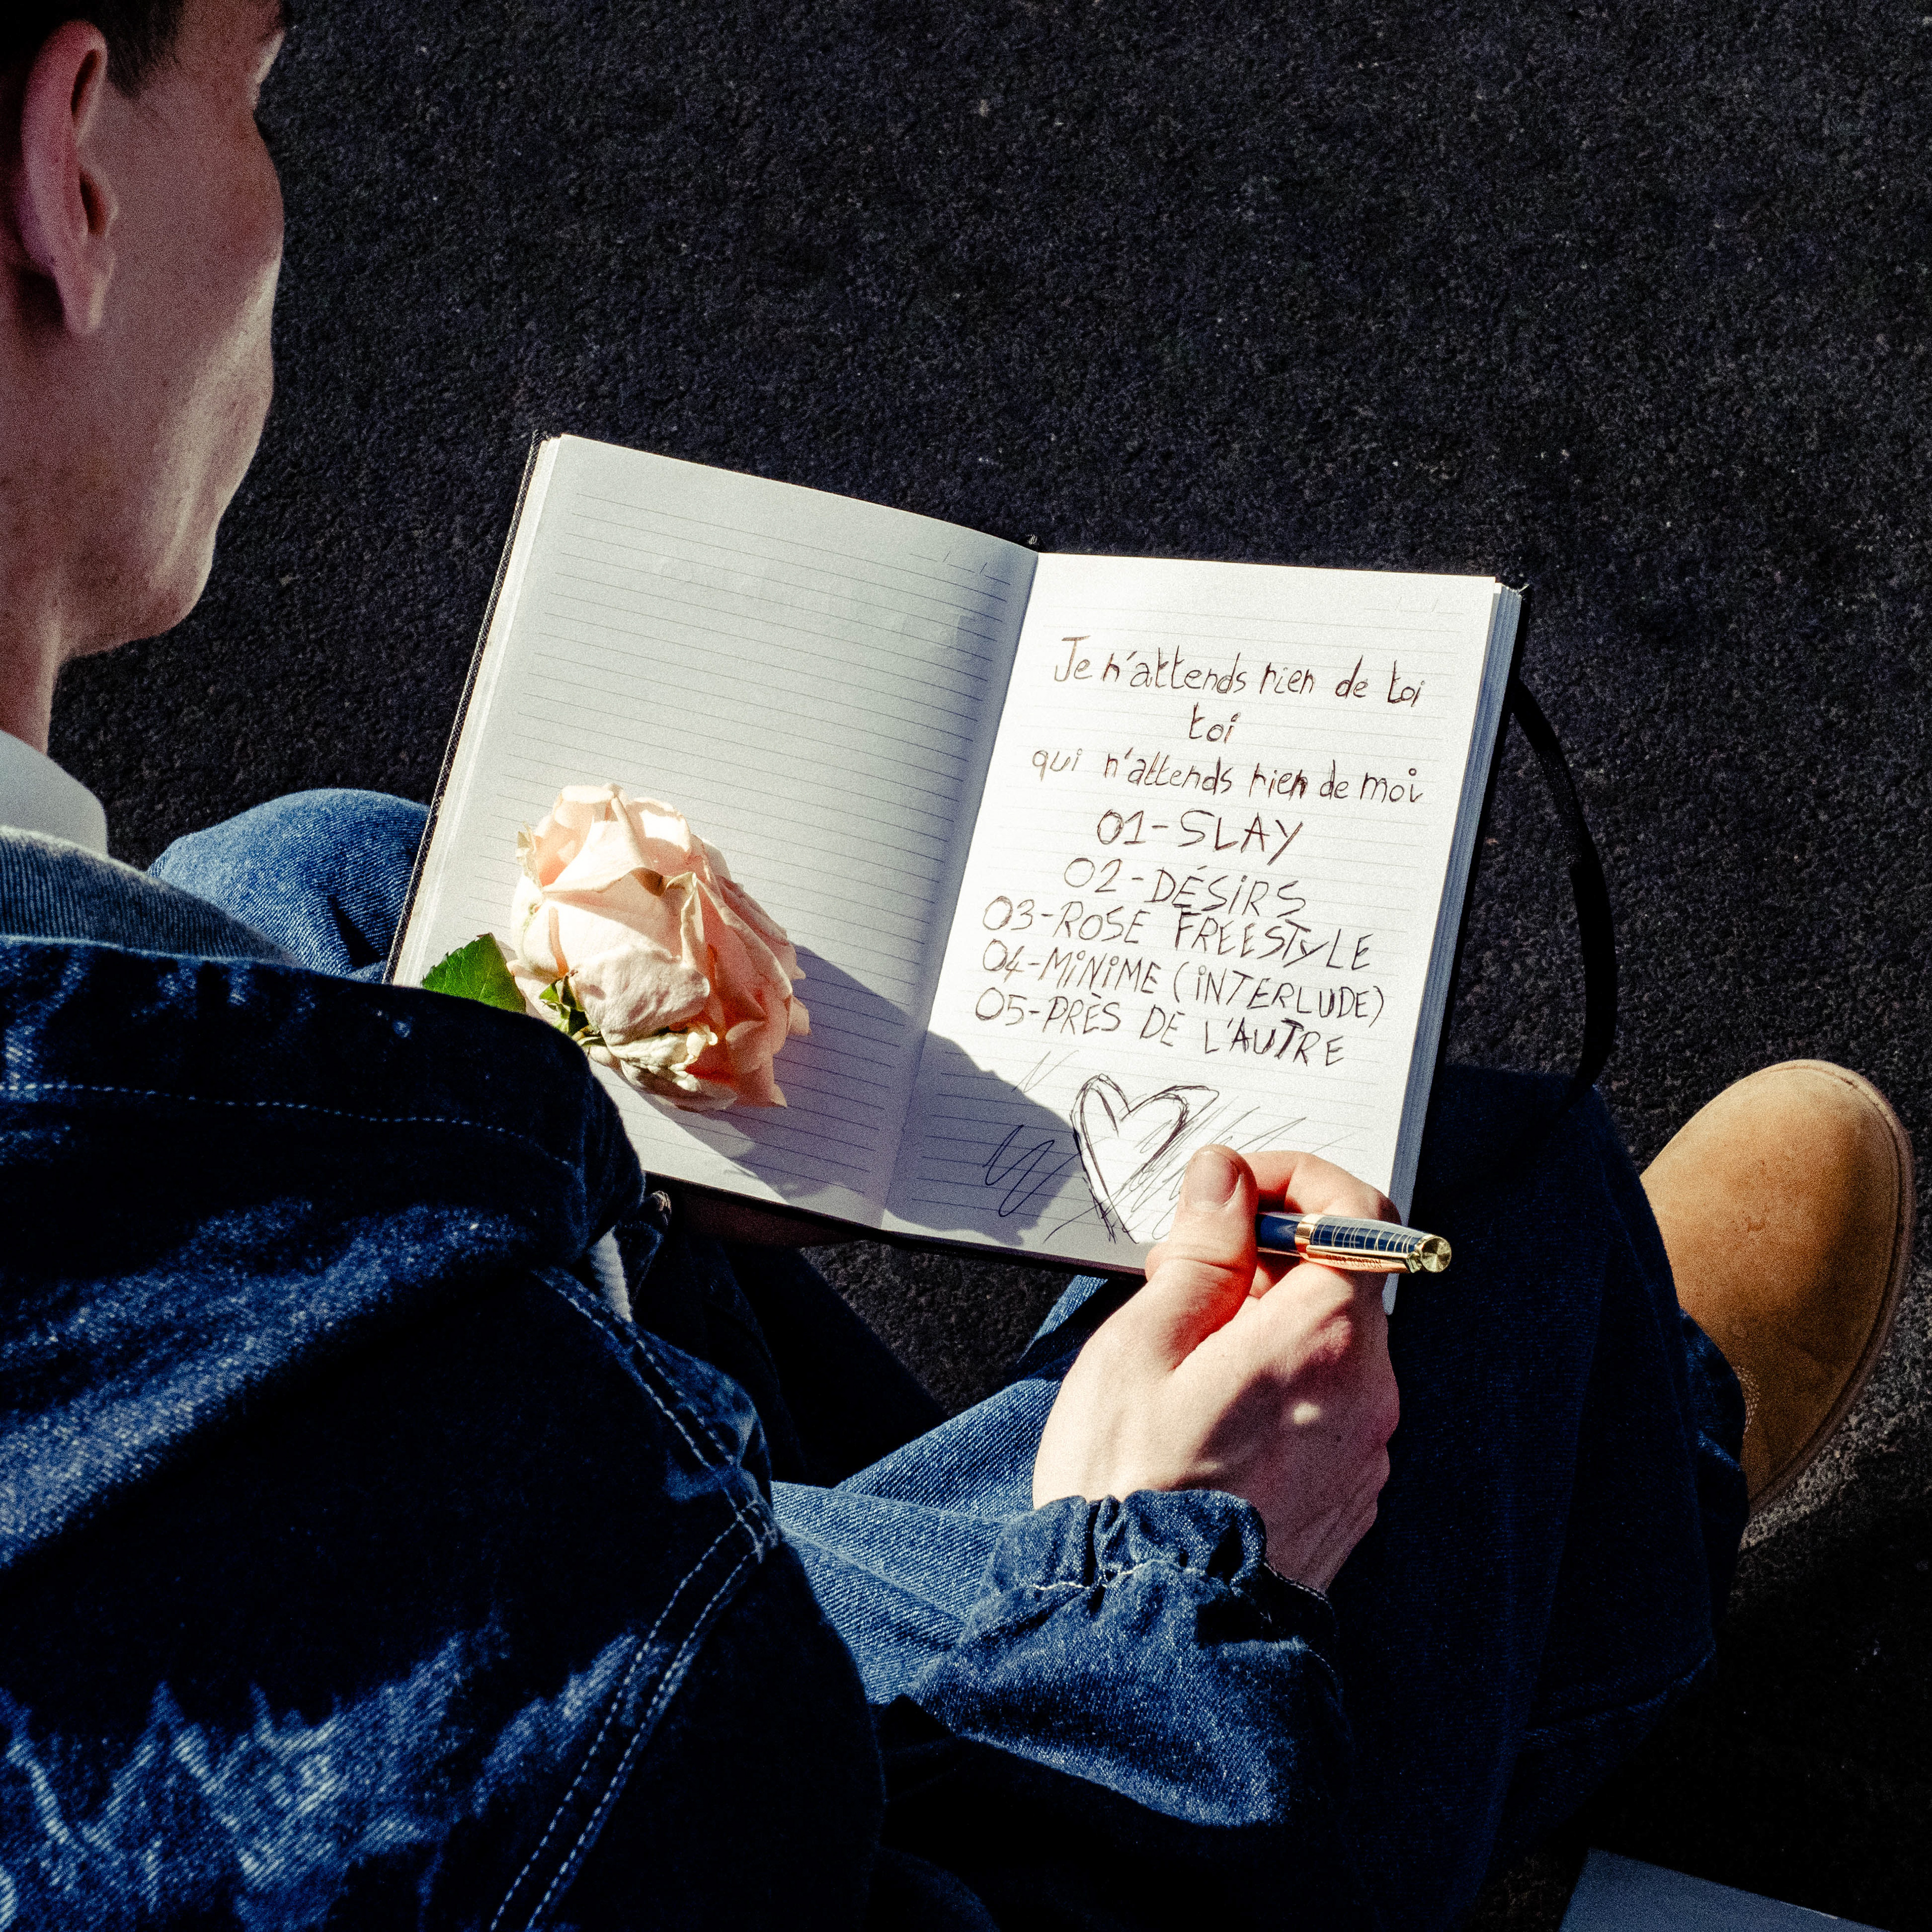 Je n'attends rien de toi
toi
qui n'attends rien de moi
01-SLAY
02-DÉSiRS
03-ROSE FREESTyLE
04-MiNiME (iNTERLUDE)
05-PRÈS DE L'AUTRE